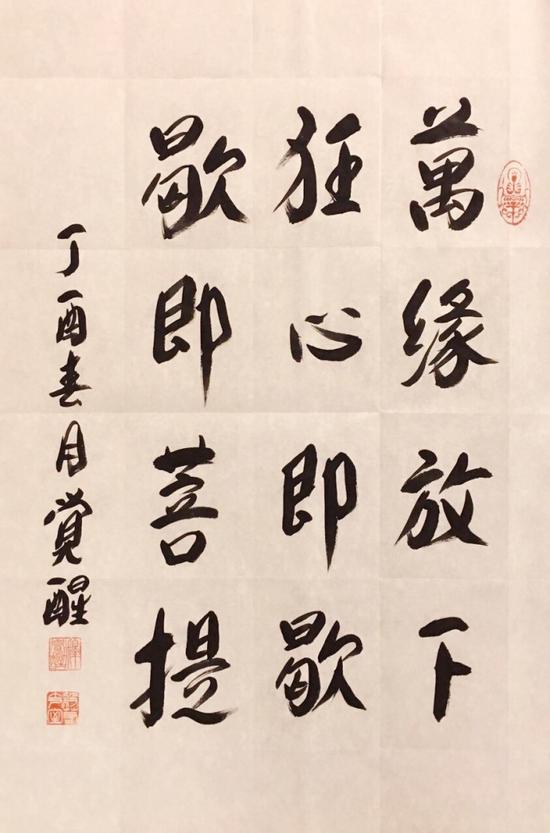 萬缘放下
狂心即歇
歇即菩提
丁酉春月覺醒